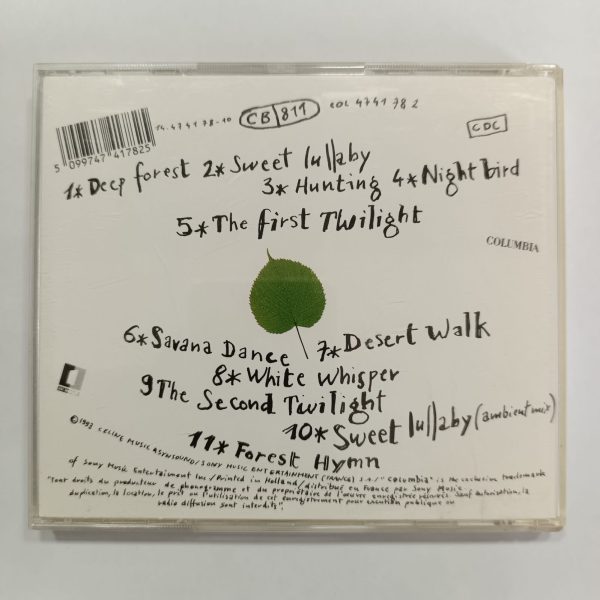 14.4741 78-10 CB/811 COL 4741 78 2
5 099747 417825
CDC
1* Deep forest 2* Sweet lullaby
3* Hunting 4* Night bird
5* The first Twilight
COLUMBIA
6* Savana Dance 7* Desert Walk
8* White Whisper
9 The Second Twilight
10* Sweet lullaby (ambient mix)
11* Forest Hymn
©1993 CELINE MUSIC & SYNSOUND/SONY MUSIC ENTERTAINMENT (FRANCE) S.A/"Columbia" is the exclusive trademark
of Sony Music Entertainment Inc/Printed in Holland/distribué en France par Sony Music
"Tout droits du producteur de phonogramme et du propriétaire de l'œuvre enregistrée réservés. Sauf autorisation, la
duplication, la location, le prêt ou l'utilisation de cet enregistrement pour exécution publique ou
radio diffusion sont interdits".